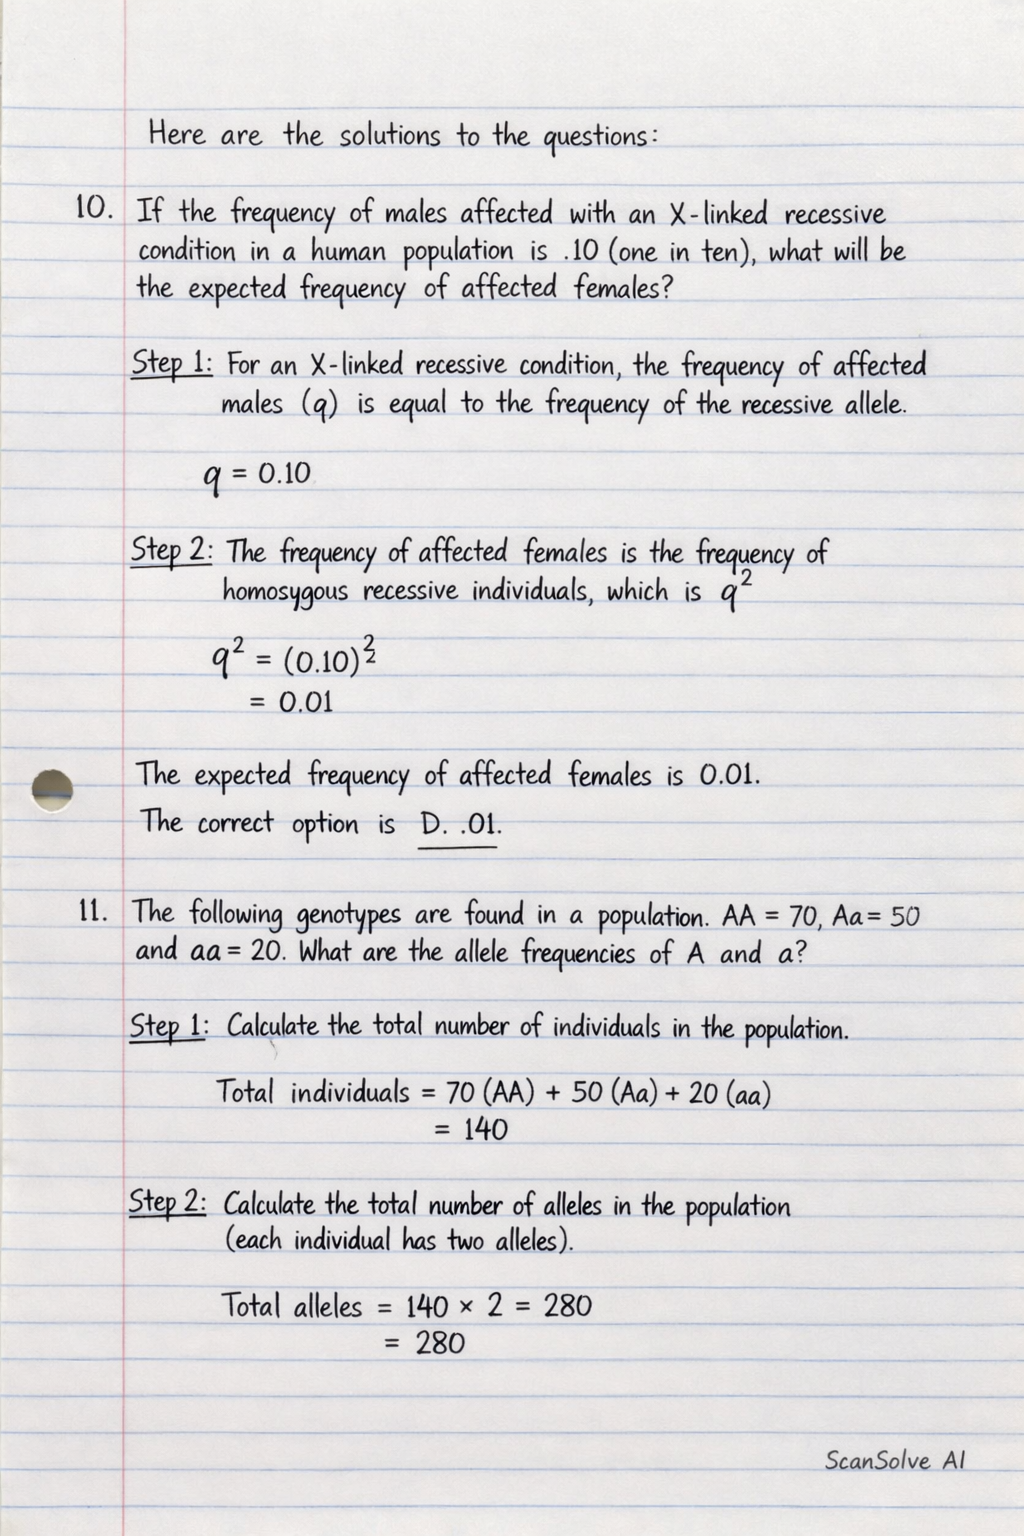 Here are the solutions to the questions:
10. If the frequency of males affected with an X-linked recessive
condition in a human population is .10 (one in ten), what will be
the expected frequency of affected females?
Step 1: For an X-linked recessive condition, the frequency of affected
males (q) is equal to the frequency of the recessive allele.
q = 0.10
Step 2: The frequency of affected females is the frequency of
homosygous recessive individuals, which is q²
q² = (0.10)²
= 0.01
The expected frequency of affected females is 0.01.
The correct option is D. .01.
11. The following genotypes are found in a population. AA = 70, Aa = 50
and aa = 20. What are the allele frequencies of A and a?
Step 1: Calculate the total number of individuals in the population.
Total individuals = 70 (AA) + 50 (Aa) + 20 (aa)
= 140
Step 2: Calculate the total number of alleles in the population
(each individual has two alleles).
Total alleles = 140 × 2 = 280
= 280
ScanSolve AI